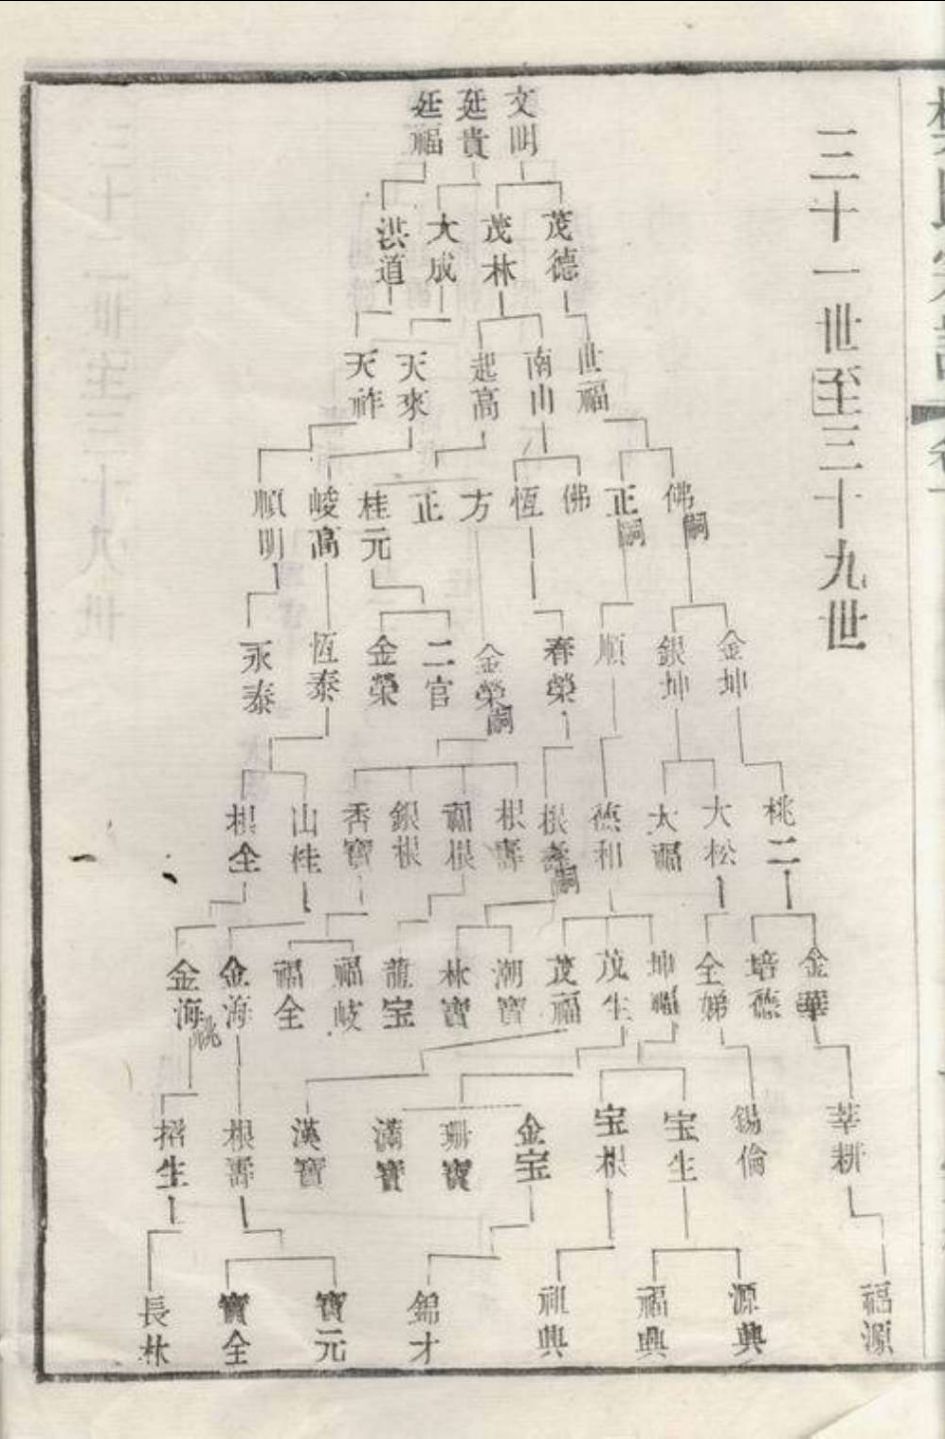 三十一世至三十九世
文明
廷貴
廷福
茂德
茂林
大成
洪道
世福
南山
起高
天來
天祚
佛嗣
正嗣
佛
恆
方
正
桂元
峻高
順明
金坤
銀坤
順
春榮
金榮嗣
二官
金榮
恆泰
永泰
桃二
大松
大福
德和
根壽嗣
根壽
福根
銀根
香寶
山桂
根全
金華
培德
全娣
坤福
茂生
茂福
潮寶
林寶
龍宝
福岐
福全
金海
金海祧
莘耕
錫倫
宝生
宝根
金宝
珊寶
瀟寶
漢寶
根壽
招生
福源
源興
福興
祖興
錦才
寶元
寶全
長林